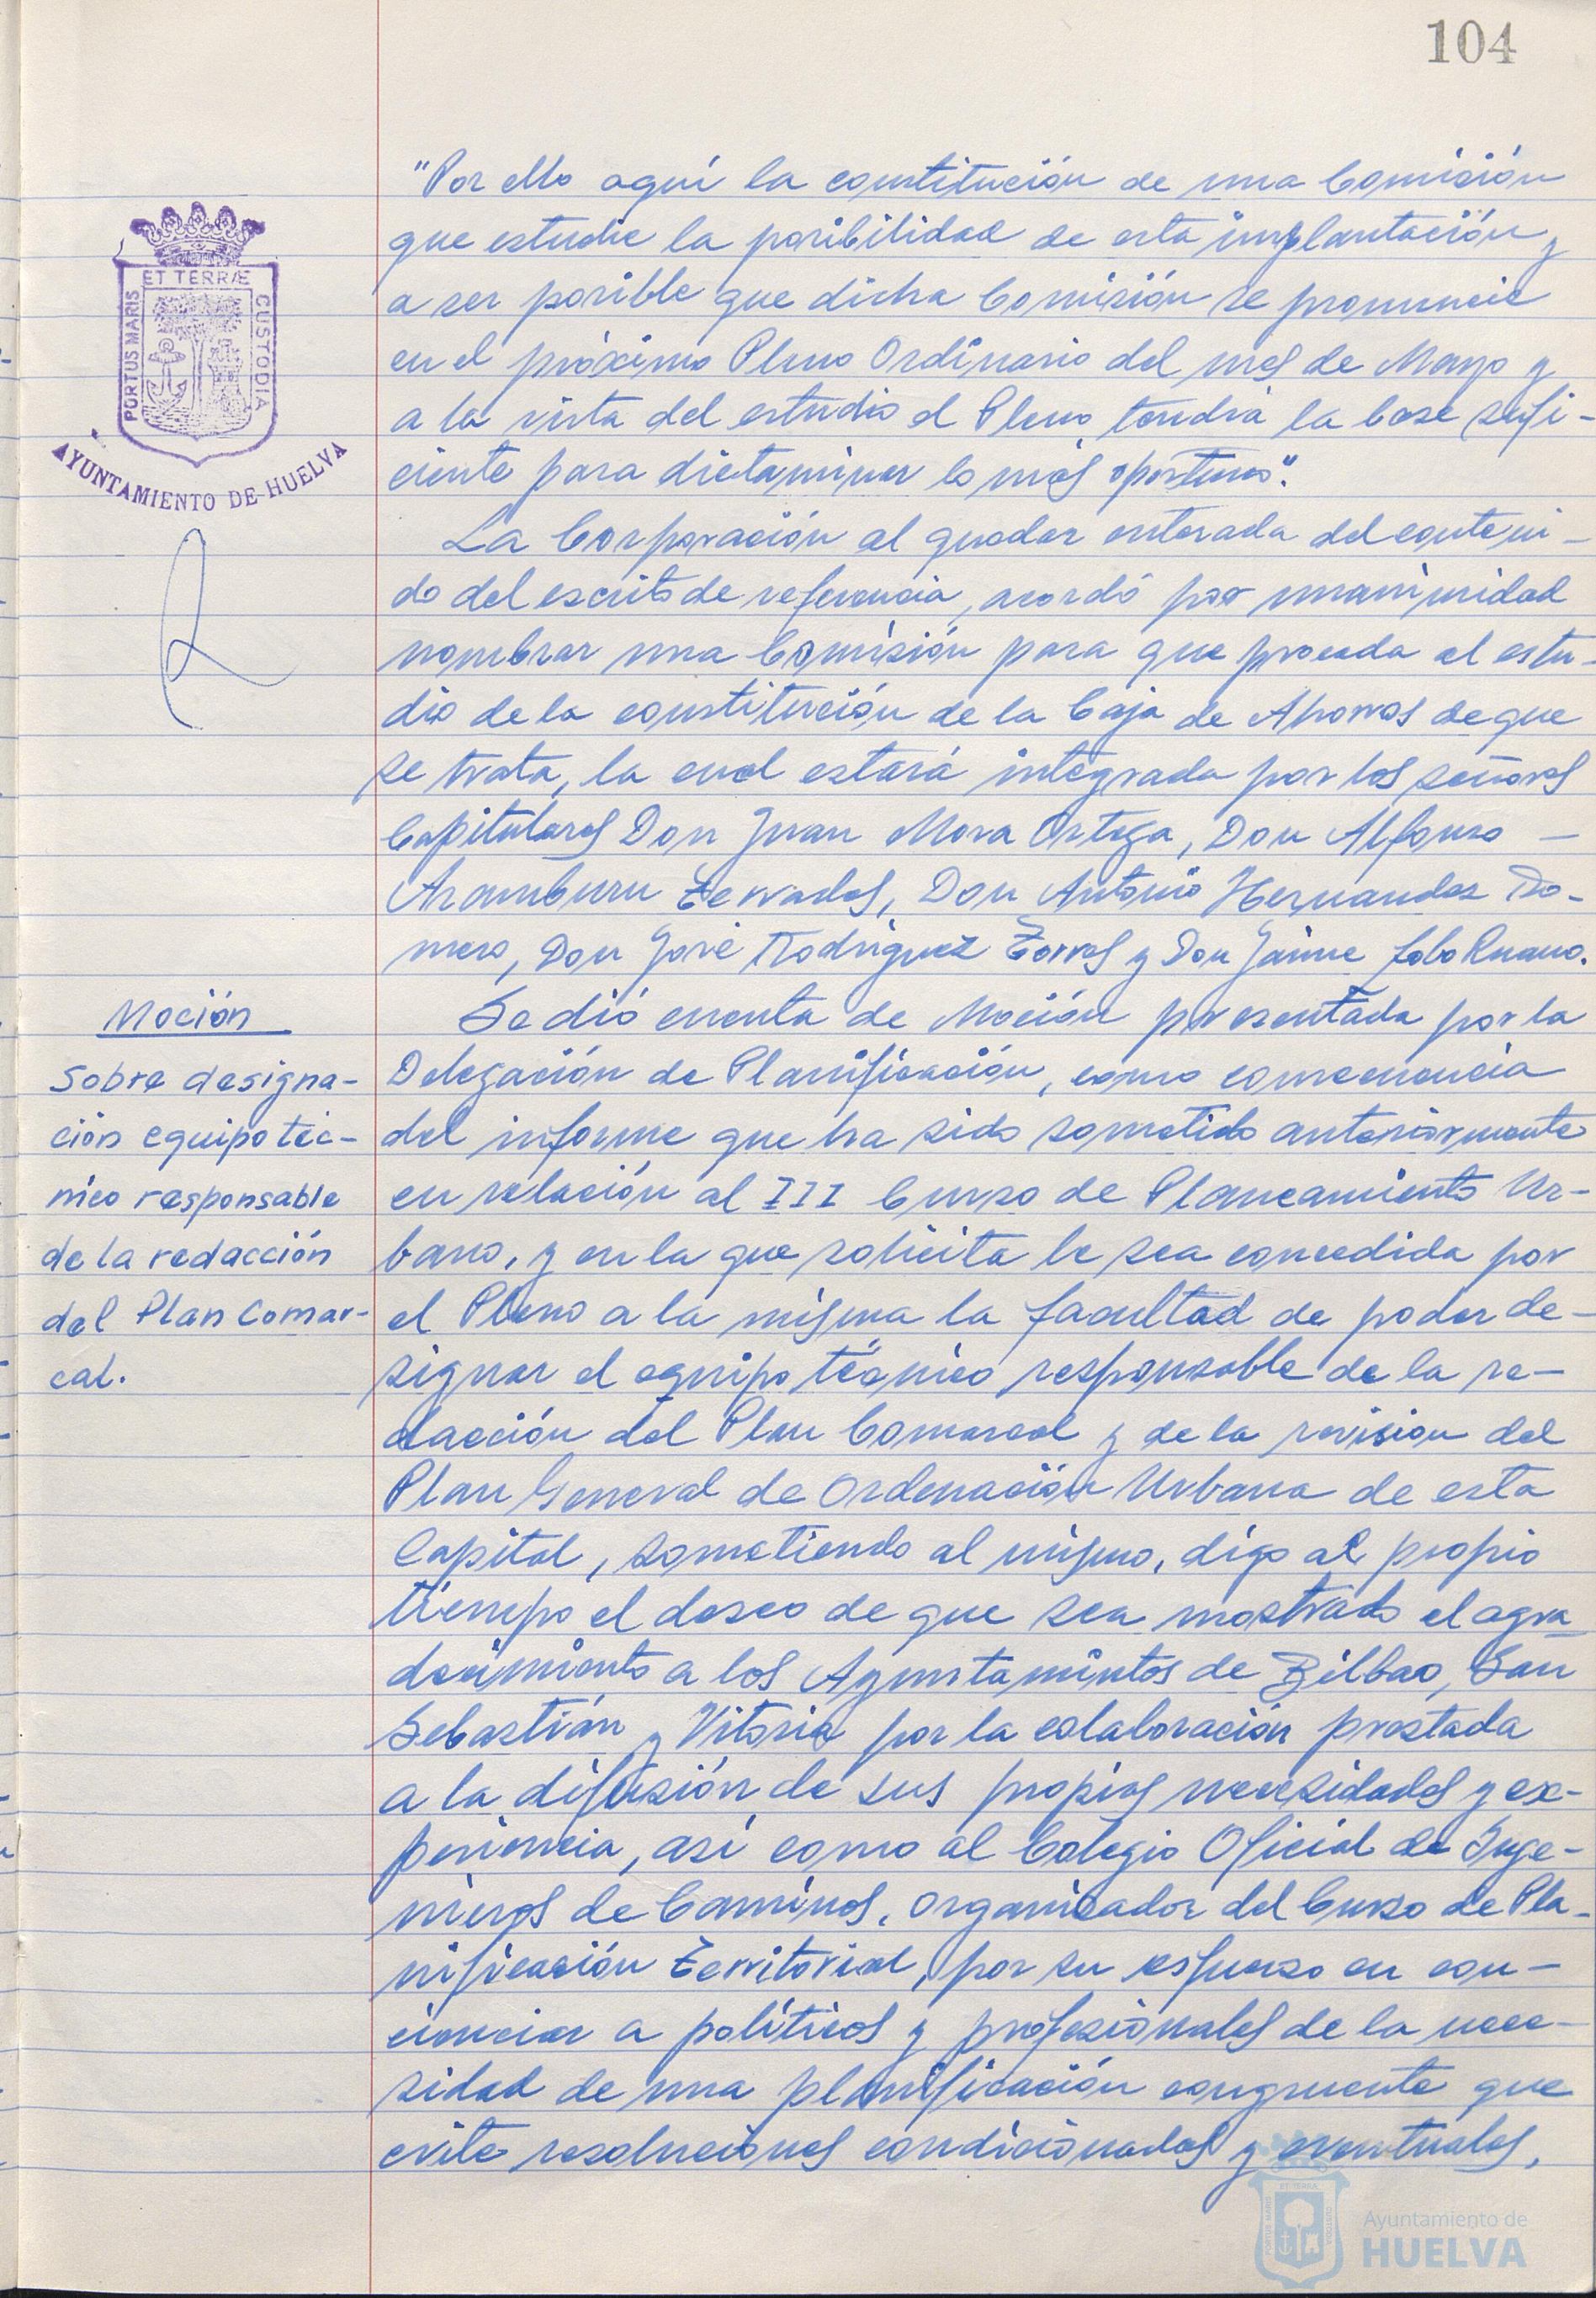 104
"Por ello aquí la constitución de una Comisión
que estudie la posibilidad de esta implantación y
a ser posible que dicha Comisión se pronuncie
en el próximo Pleno Ordinario del mes de Mayo y
a la vista del estudio el Pleno tendrá la base sufi-
ciente para dictaminar lo más oportuno".
La Corporación al quedar enterada del conteni-
do del escrito de referencia, acordó por unanimidad
nombrar una Comisión para que proceda al estu-
dio de la constitución de la Caja de Ahorros de que
se trata, la cual estará integrada por los señores
Capitulares Don Juan Mora Ortega, Don Alfonso -
Aramburu Terrados, Don Antonio Hernandez Ro-
mero, Don José Rodríguez Torres y Don Jaime Lobo Ruano.
Moción
Sobre designa-
ción equipo téc-
nico responsable
de la redacción
del Plan Comar-
cal.
Se dió cuenta de Moción presentada por la
Delegación de Planificación, como consecuencia
del informe que ha sido sometido anteriormente
en relación al III Curso de Planeamiento Ur-
bano, y en la que solicita le sea concedida por
el Pleno a la misma la facultad de poder de-
signar el equipo técnico responsable de la re-
dacción del Plan Comarcal y de la revision del
Plan General de Ordenación Urbana de esta
Capital, sometiendo al mismo, digo al propio
tiempo el deseo de que sea mostrado el agra
decimiento a los Ayuntamintos de Bilbao, San
Sebastián y Vitoria por la colaboración prestada
a la difusión de sus propias necesidades y ex-
periencia, así como al Colegio Oficial de Inge-
nieros de Caminos, organizador del Curso de Pla-
nificación Territorial, por su esfuerzo en con-
cienciar a políticos y profesionales de la nece-
sidad de una planificación congruente que
evite resoluciones condicionadas y eventuales,
ET TERRÆ
PORTUS MARIS
CUSTODIA
AYUNTAMIENTO DE HUELVA
Ayuntamiento de
HUELVA